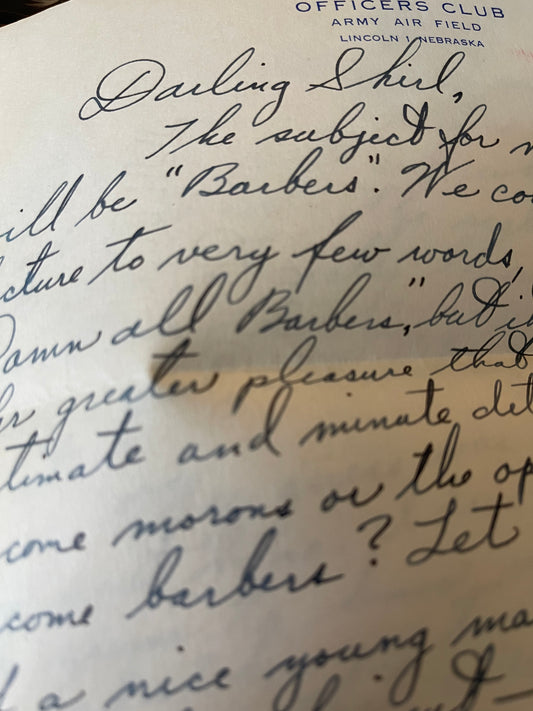 OFFICERS CLUB
ARMY AIR FIELD
LINCOLN 1, NEBRASKA
Darling Shirl,
The subject for
ill be "Barbers". We co
cture to very few words,
Damn all Barbers," but i
r greater pleasure that
timate and minute det
come morons or the op
come barbers? Let
a nice young ma